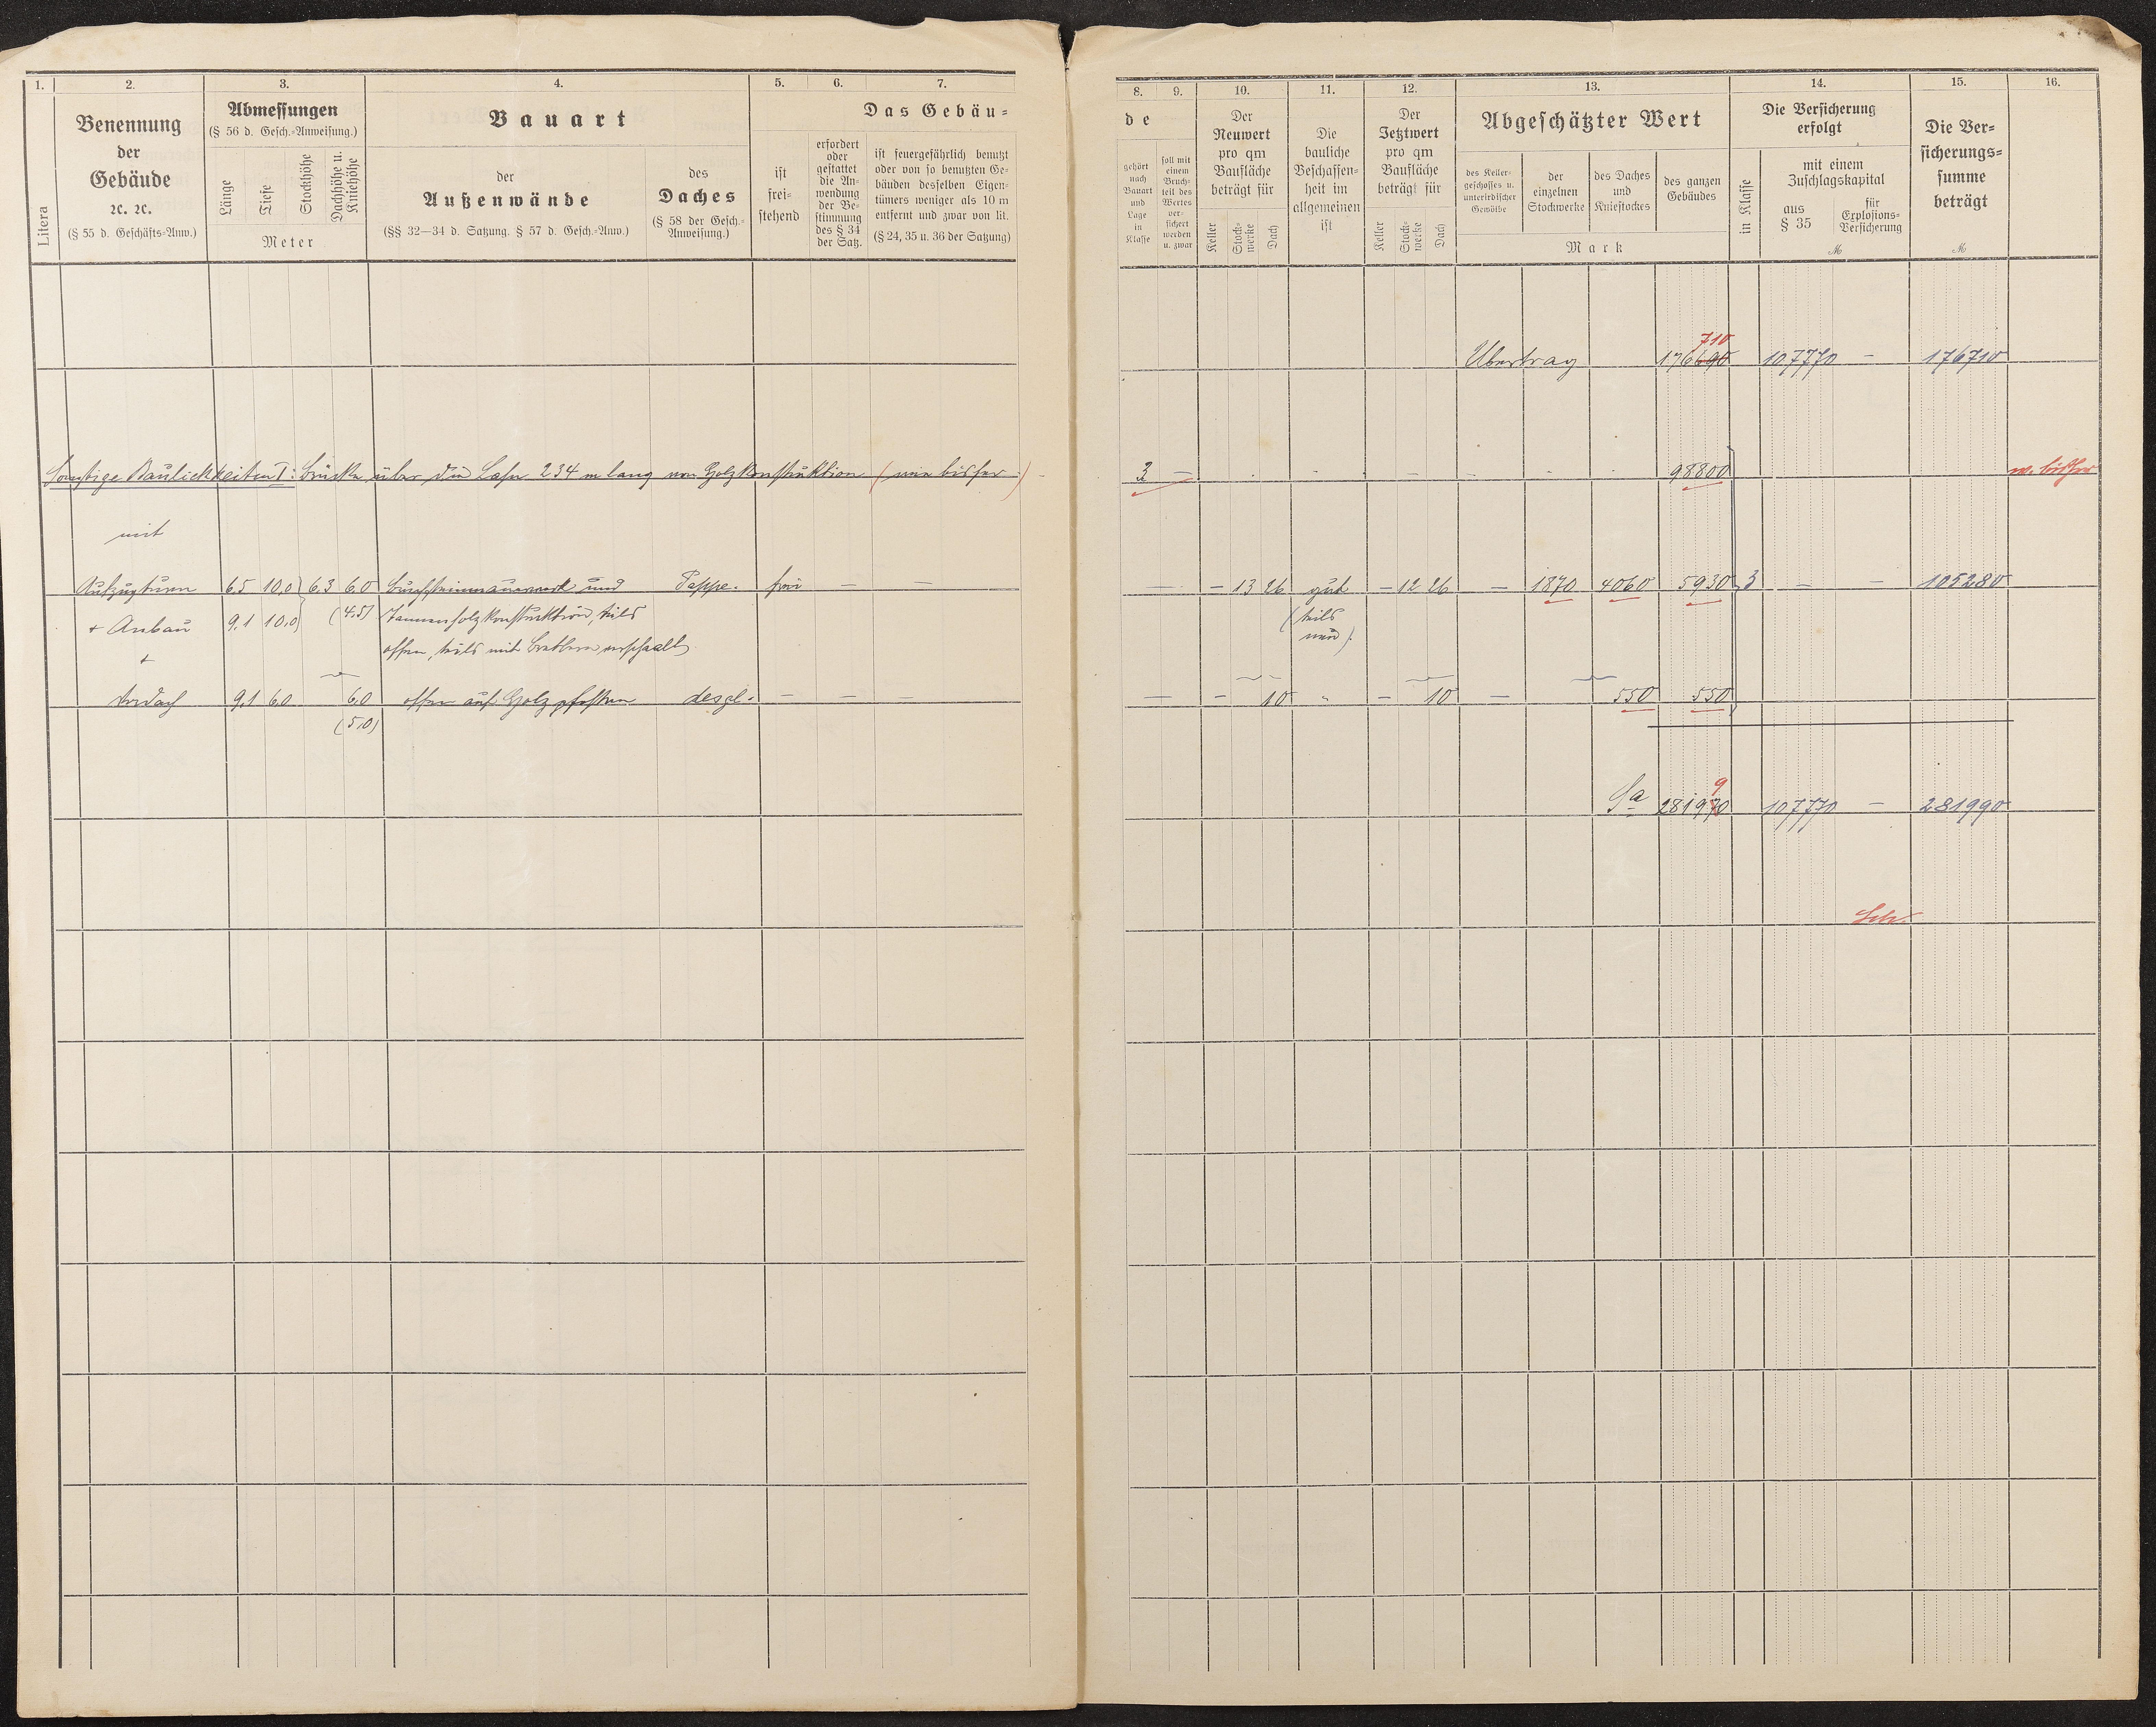 1. 2. 3. 4. 5. 6. 7.
Litera
Benennung
der
Gebäude
ꝛc. ꝛc.
(§ 55 d. Geschäfts-Anw.)
Abmessungen
(§ 56 d. Gesch.-Anweisung.)
Länge
Tiefe
Stockhöhe
Dachhöhe u.
Kniehöhe
Meter
Bauart
der
Außenwände
(§§ 32—34 d. Satzung. § 57 d. Gesch.-Anw.)
des
Daches
(§ 58 der Gesch.-
Anweisung.)
Das Gebäu-
ist
frei-
stehend
erfordert
oder
gestattet
die An-
wendung
der Be-
stimmung
des § 34
der Satz.
ist feuergefährlich benutzt
oder von so benutzten Ge-
bäuden desselben Eigen-
tümers weniger als 10 m
entfernt und zwar von lit.
(§ 24, 35 u. 36 der Satzung)
Sonstige Baulichkeiten I: Brücke über die Lahn 234 m lang von Holzkonstruktion (wie bisher)
mit
Aufzugturm 6.5 10.0 6.3 6.0 Bruchsteinmauerwerk und Pappe. frei — —
+ Anbau 9.1 10.0 (4.5) Tannenholzkonstruktion, teils
+ offen, teils mit Brettern verschaalt
Vordach 9.1 6.0 6.0 offen auf Holzpfosten desgl. — — —
(5.0)
8. 9. 10. 11. 12. 13. 14. 15. 16.
de
gehört
nach
Bauart
und
Lage
in
Klasse
soll mit
einem
Bruch-
teil des
Wertes
ver-
sichert
werden
u. zwar
Der
Neuwert
pro qm
Baufläche
beträgt für
Keller
Stock-
werke
Dach
Die
bauliche
Beschaffen-
heit im
allgemeinen
ist
Der
Jetztwert
pro qm
Baufläche
beträgt für
Keller
Stock-
werke
Dach
Abgeschätzter Wert
des Keller-
geschosses u.
unterirdischer
Gewölbe
der
einzelnen
Stockwerke
des Daches
und
Kniestockes
des ganzen
Gebäudes
Mark
Die Versicherung
erfolgt
in Klasse
mit einem
Zuschlagskapital
aus
§ 35
für
Explosions-
Versicherung
ℳ
Die Ver-
sicherungs-
summe
beträgt
ℳ
710
Übertrag 176690 107770 — 176710
3 — 98800 w. bisher
— — 13 26 gut — 12 26 — 1870 4060 5930 3 — — 105280
(teils
neu).
— — 10 " — 10 — 550 550
9
Sa 281970 107770 — 281990